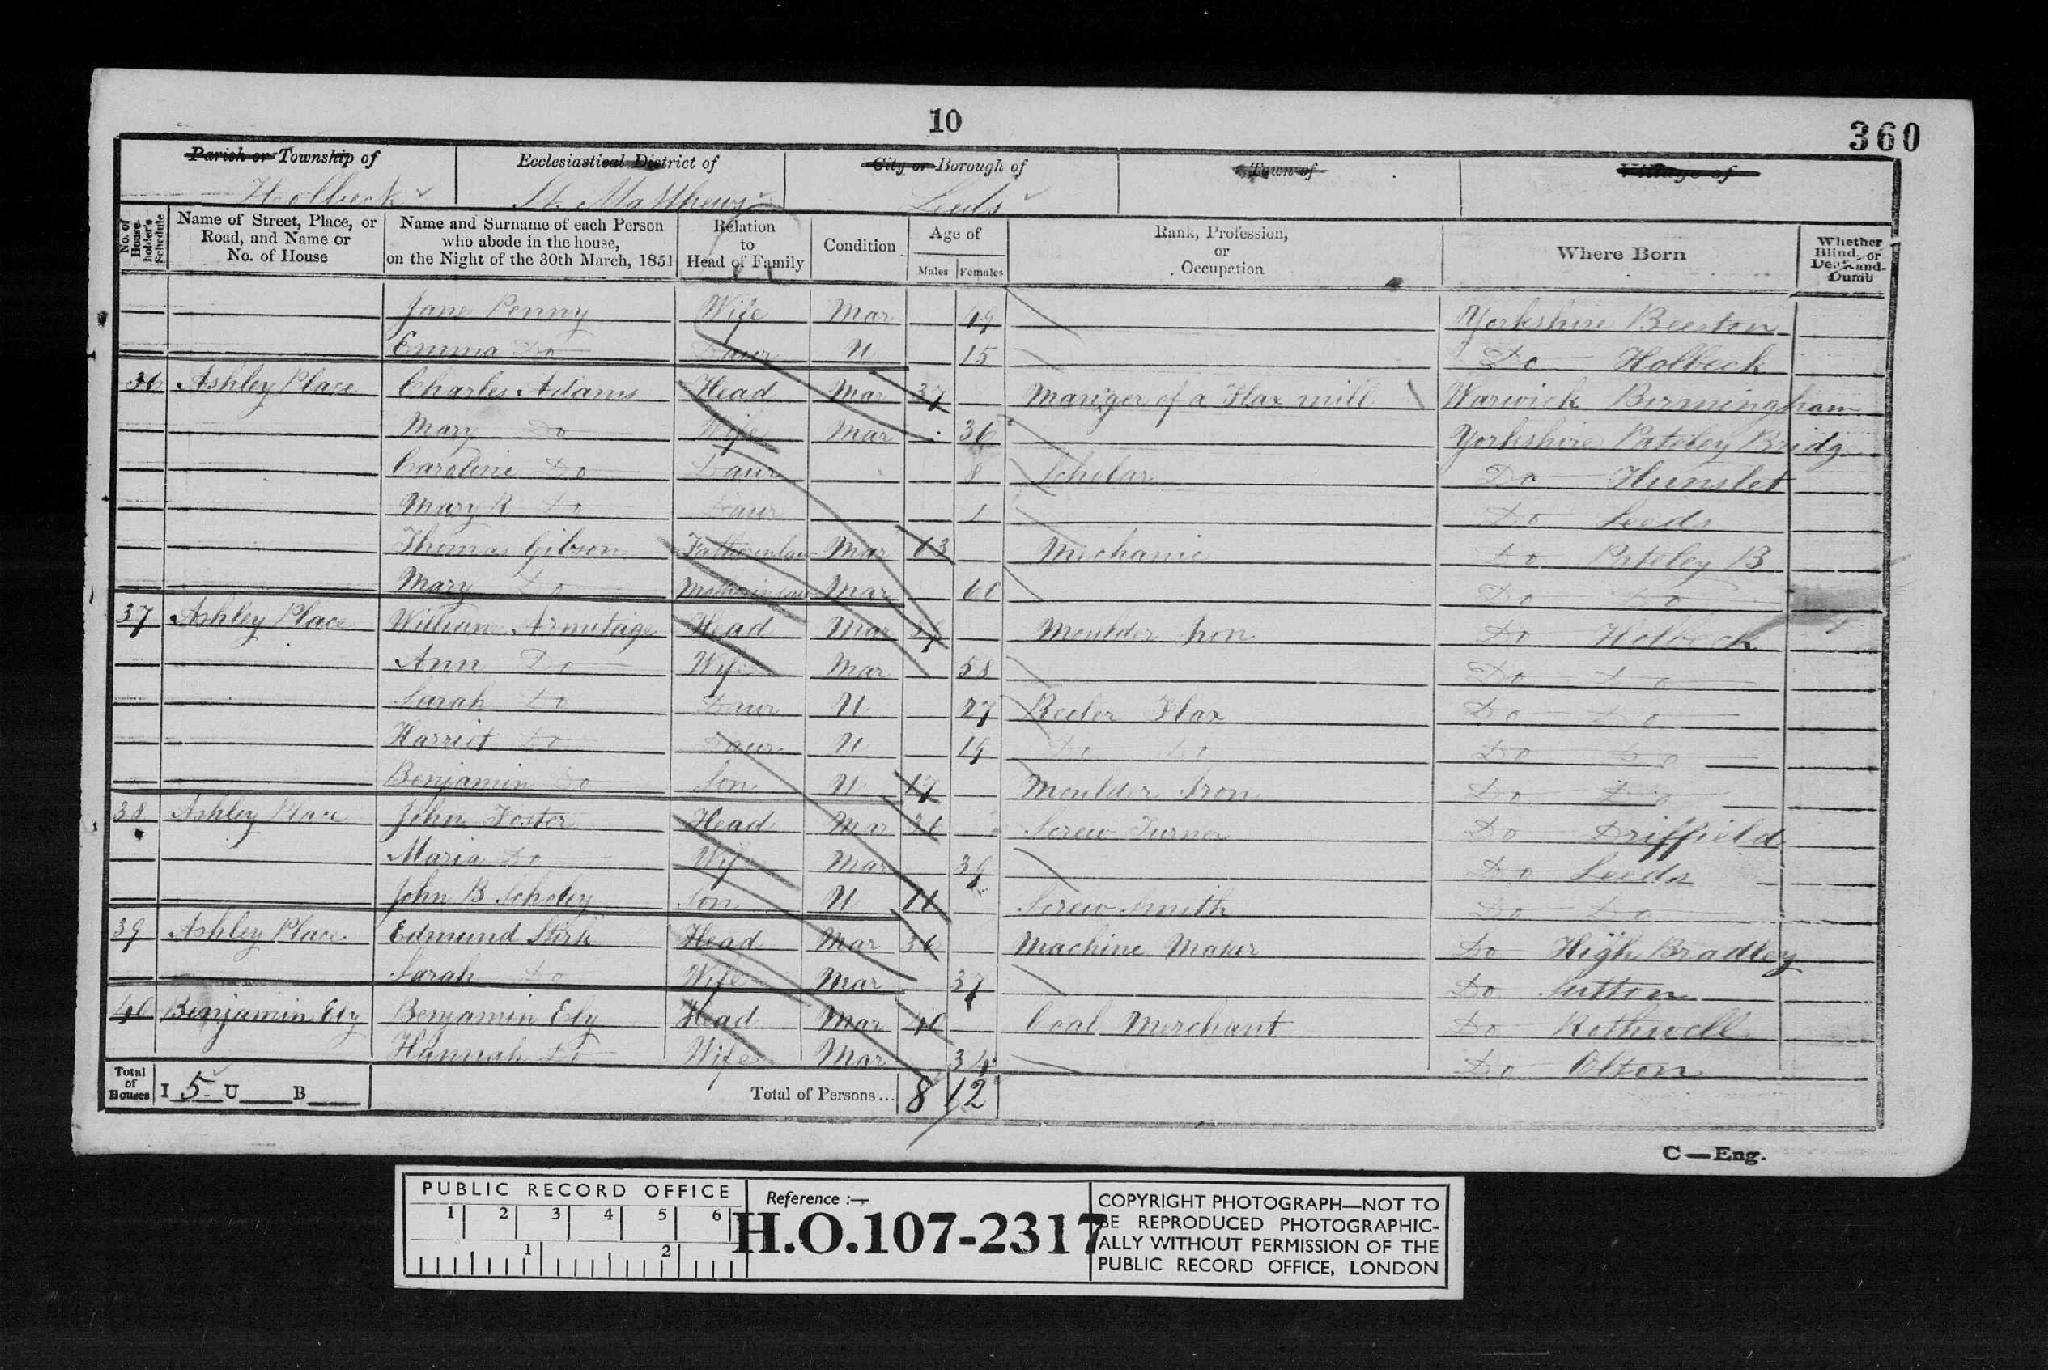 10
360
Parish or Township of Ecclesiastical District of City or Borough of Town of Village of
Holbeck St. Matthews Leeds
No. of House-holder's Schedule
Name of Street, Place, or Road, and Name or No. of House
Name and Surname of each Person who abode in the house, on the Night of the 30th March, 1851
Relation to Head of Family
Condition
Age of
Males Females
Rank, Profession, or Occupation
Where Born
Whether Blind, or Deaf-and-Dumb
Jane Penny Wife Mar 49 Yorkshire Beeston
Emma Do Daur U 15 Do Holbeck
36 Ashley Place Charles Adams Head Mar 37 Manager of a Flax mill Warwick Birmingham
Mary Do Wife Mar 36 Yorkshire Pateley Bridg
Caroline Do Daur 8 Scholar Do Hunslet
Mary A Do Daur 1 Do Leeds
Thomas Gibson Fatherinlaw Mar 63 Mechanic Do Pateley B
Mary Do Motherinlaw Mar 60 Do Do
37 Ashley Place William Armitage Head Mar Moulder Iron Do Holbeck
Ann Do Wife Mar 58 Do Do
Sarah Do Daur U 27 Reeler Flax Do Do
Harriot Do Daur U 19 Do Do Do Do
Benjamin Do Son U 17 Moulder Iron Do Do
38 Ashley Place John Foster Head Mar 36 Screw Turner Do Driffield
Maria Do Wife Mar 39 Do Leeds
John B Scholey Son U 16 Screw Smith Do Do
39 Ashley Place Edmund Stork Head Mar 36 Machine Maker Do High Bradley
Sarah Do Wife Mar 37 Do Sutton
40 Benjamin Ely Benjamin Ely Head Mar 40 Coal Merchant Do Rothwell
Hannah Do Wife Mar 34 Do Olton
Total of Houses I 5 U B Total of Persons... 8 12
C—Eng.
PUBLIC RECORD OFFICE
1 2 3 4 5 6
1 2
Reference :—
H.O.107-2317
COPYRIGHT PHOTOGRAPH—NOT TO
BE REPRODUCED PHOTOGRAPHIC-
ALLY WITHOUT PERMISSION OF THE
PUBLIC RECORD OFFICE, LONDON